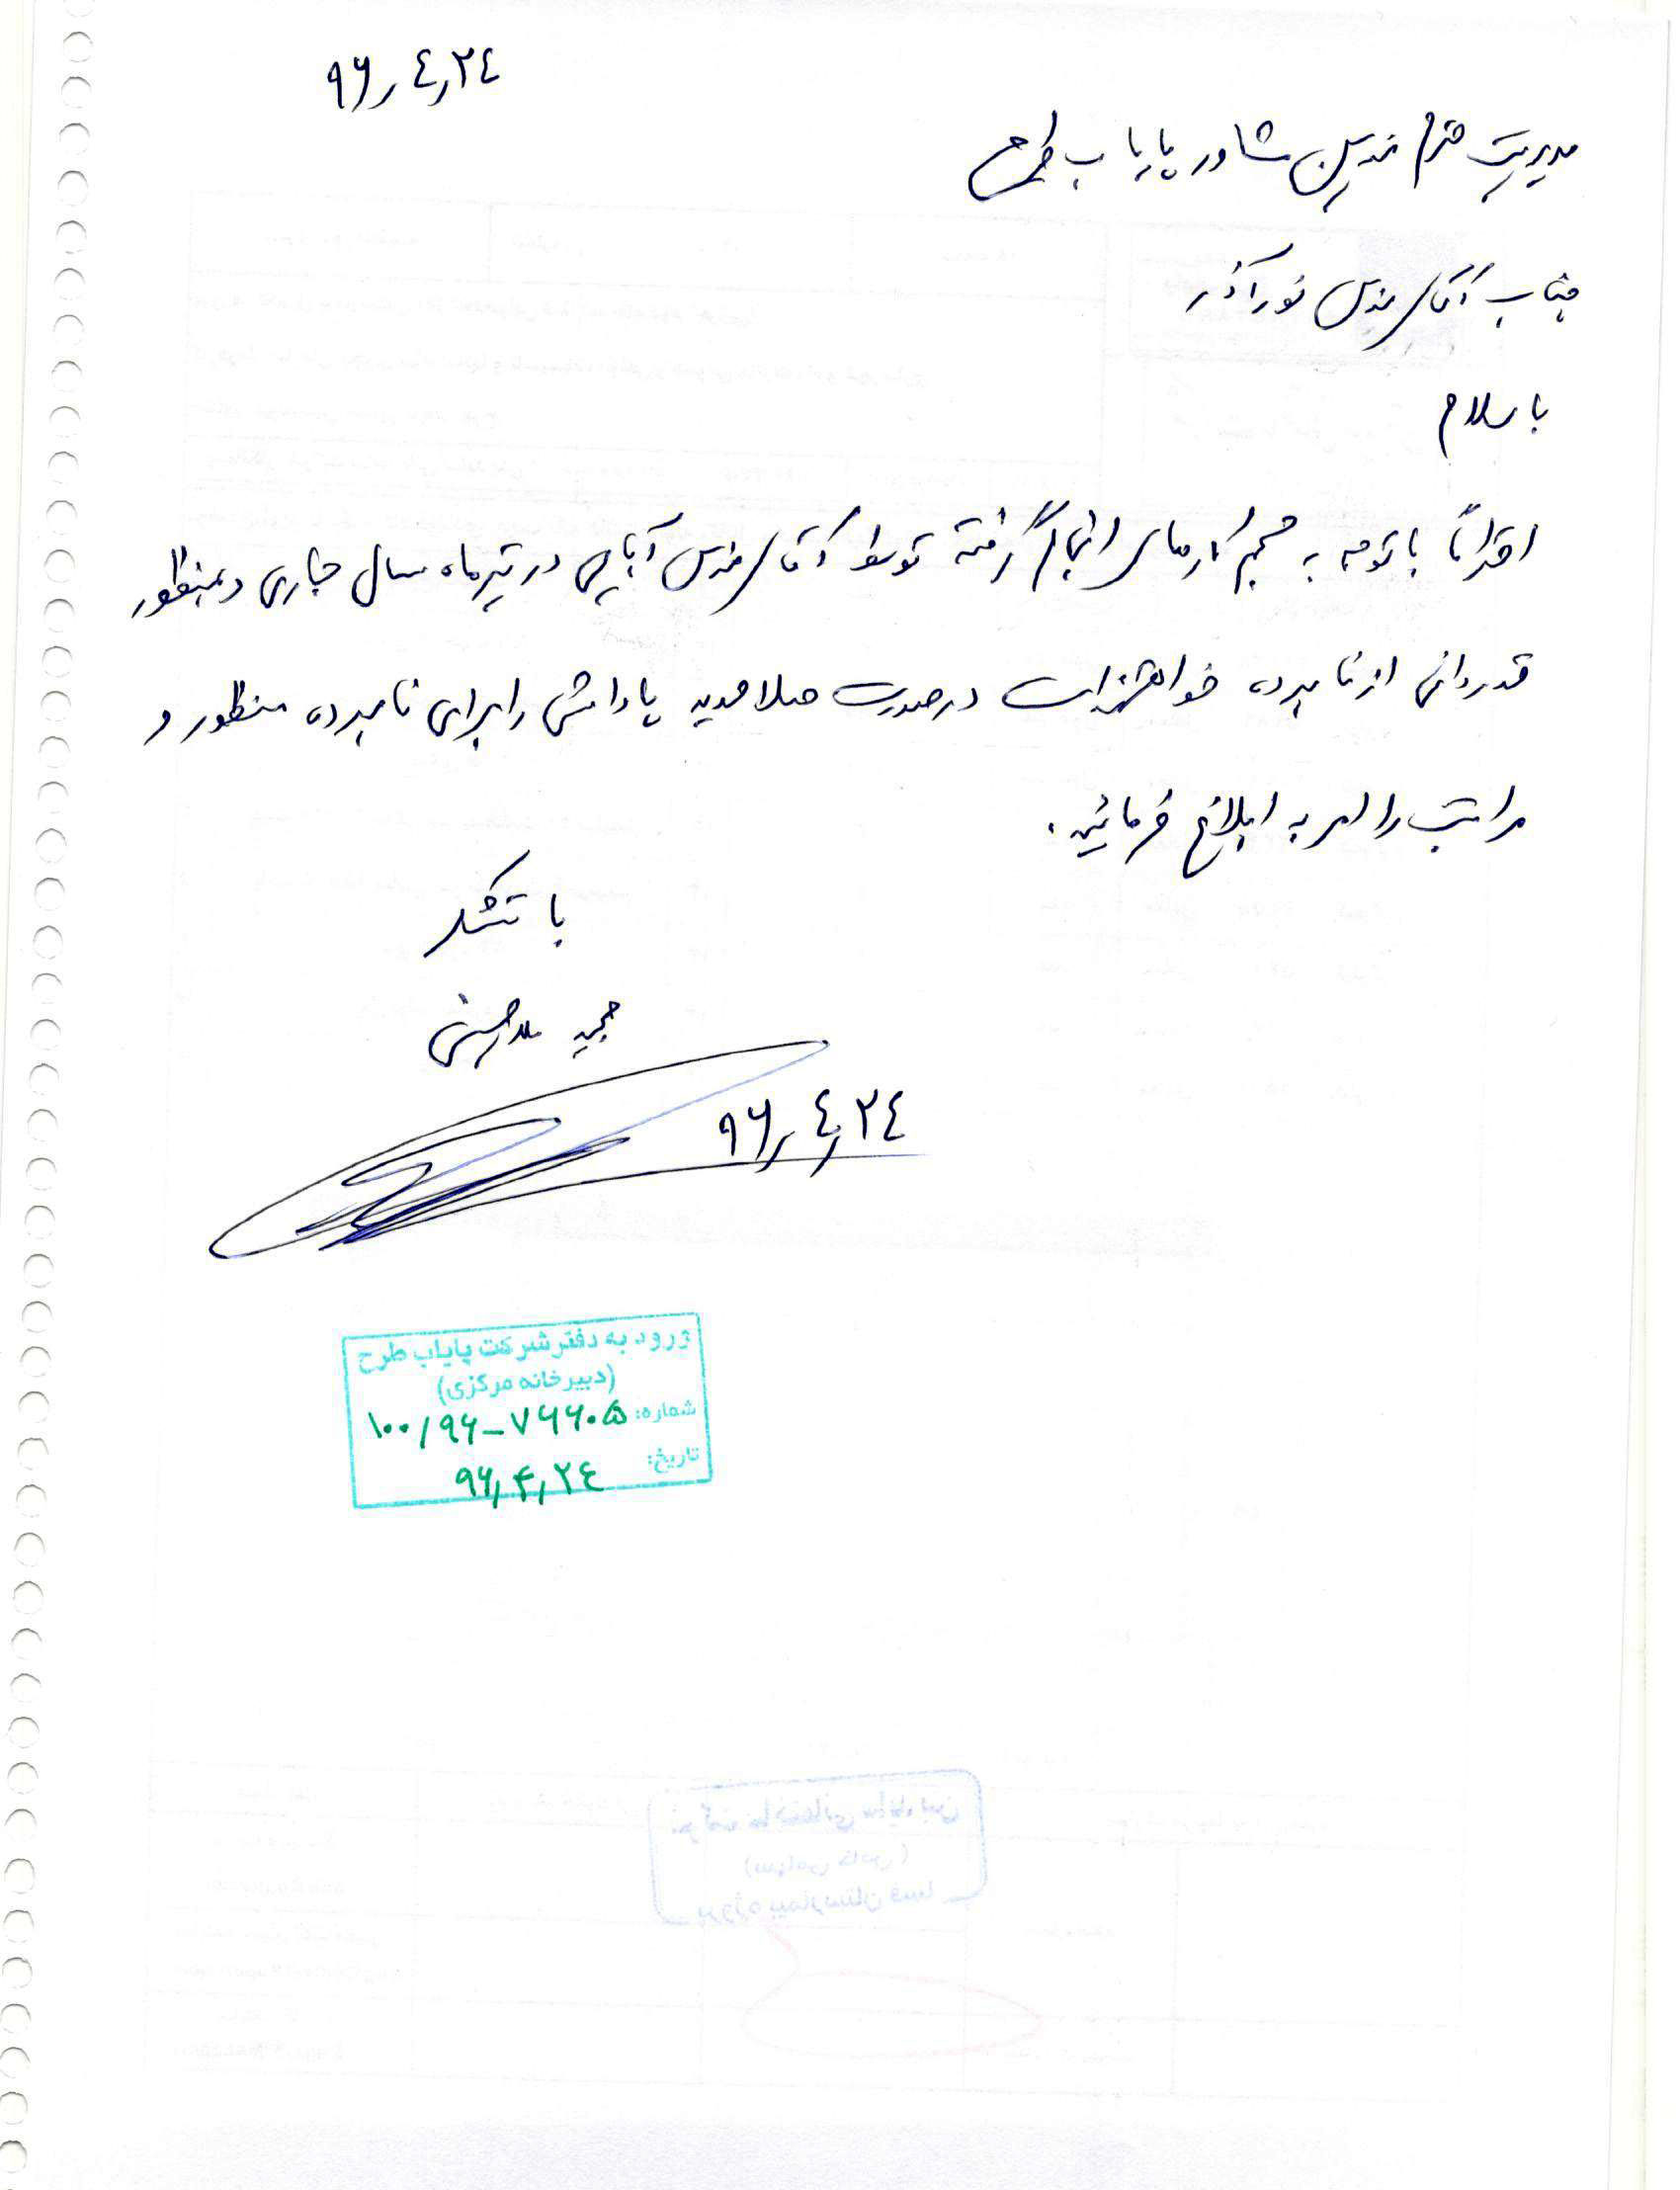 ۹۶٫۴٫۲۴
مدیریت محترم مهندسین مشاور پایاب طرح
جناب آقای مهندس نورآذر
با سلام
احتراماً با توجه به حجم کارهای انجام گرفته توسط آقای مهندس آبایی در تیرماه سال جاری و بمنظور
قدردانی از نامبرده خواهشمند است در صورت صلاحدید پاداش را برای نامبرده منظور و
مراتب را به ابلاغ فرمائید.
با تشکر
مجید
۹۶٫۴٫۲۴
ورود به دفتر شرکت پایاب طرح
(دبیرخانه مرکزی)
شماره: ۱۰۰/۹۶-۷۶۶۰۵
تاریخ: ۹۶٫۴٫۲۴